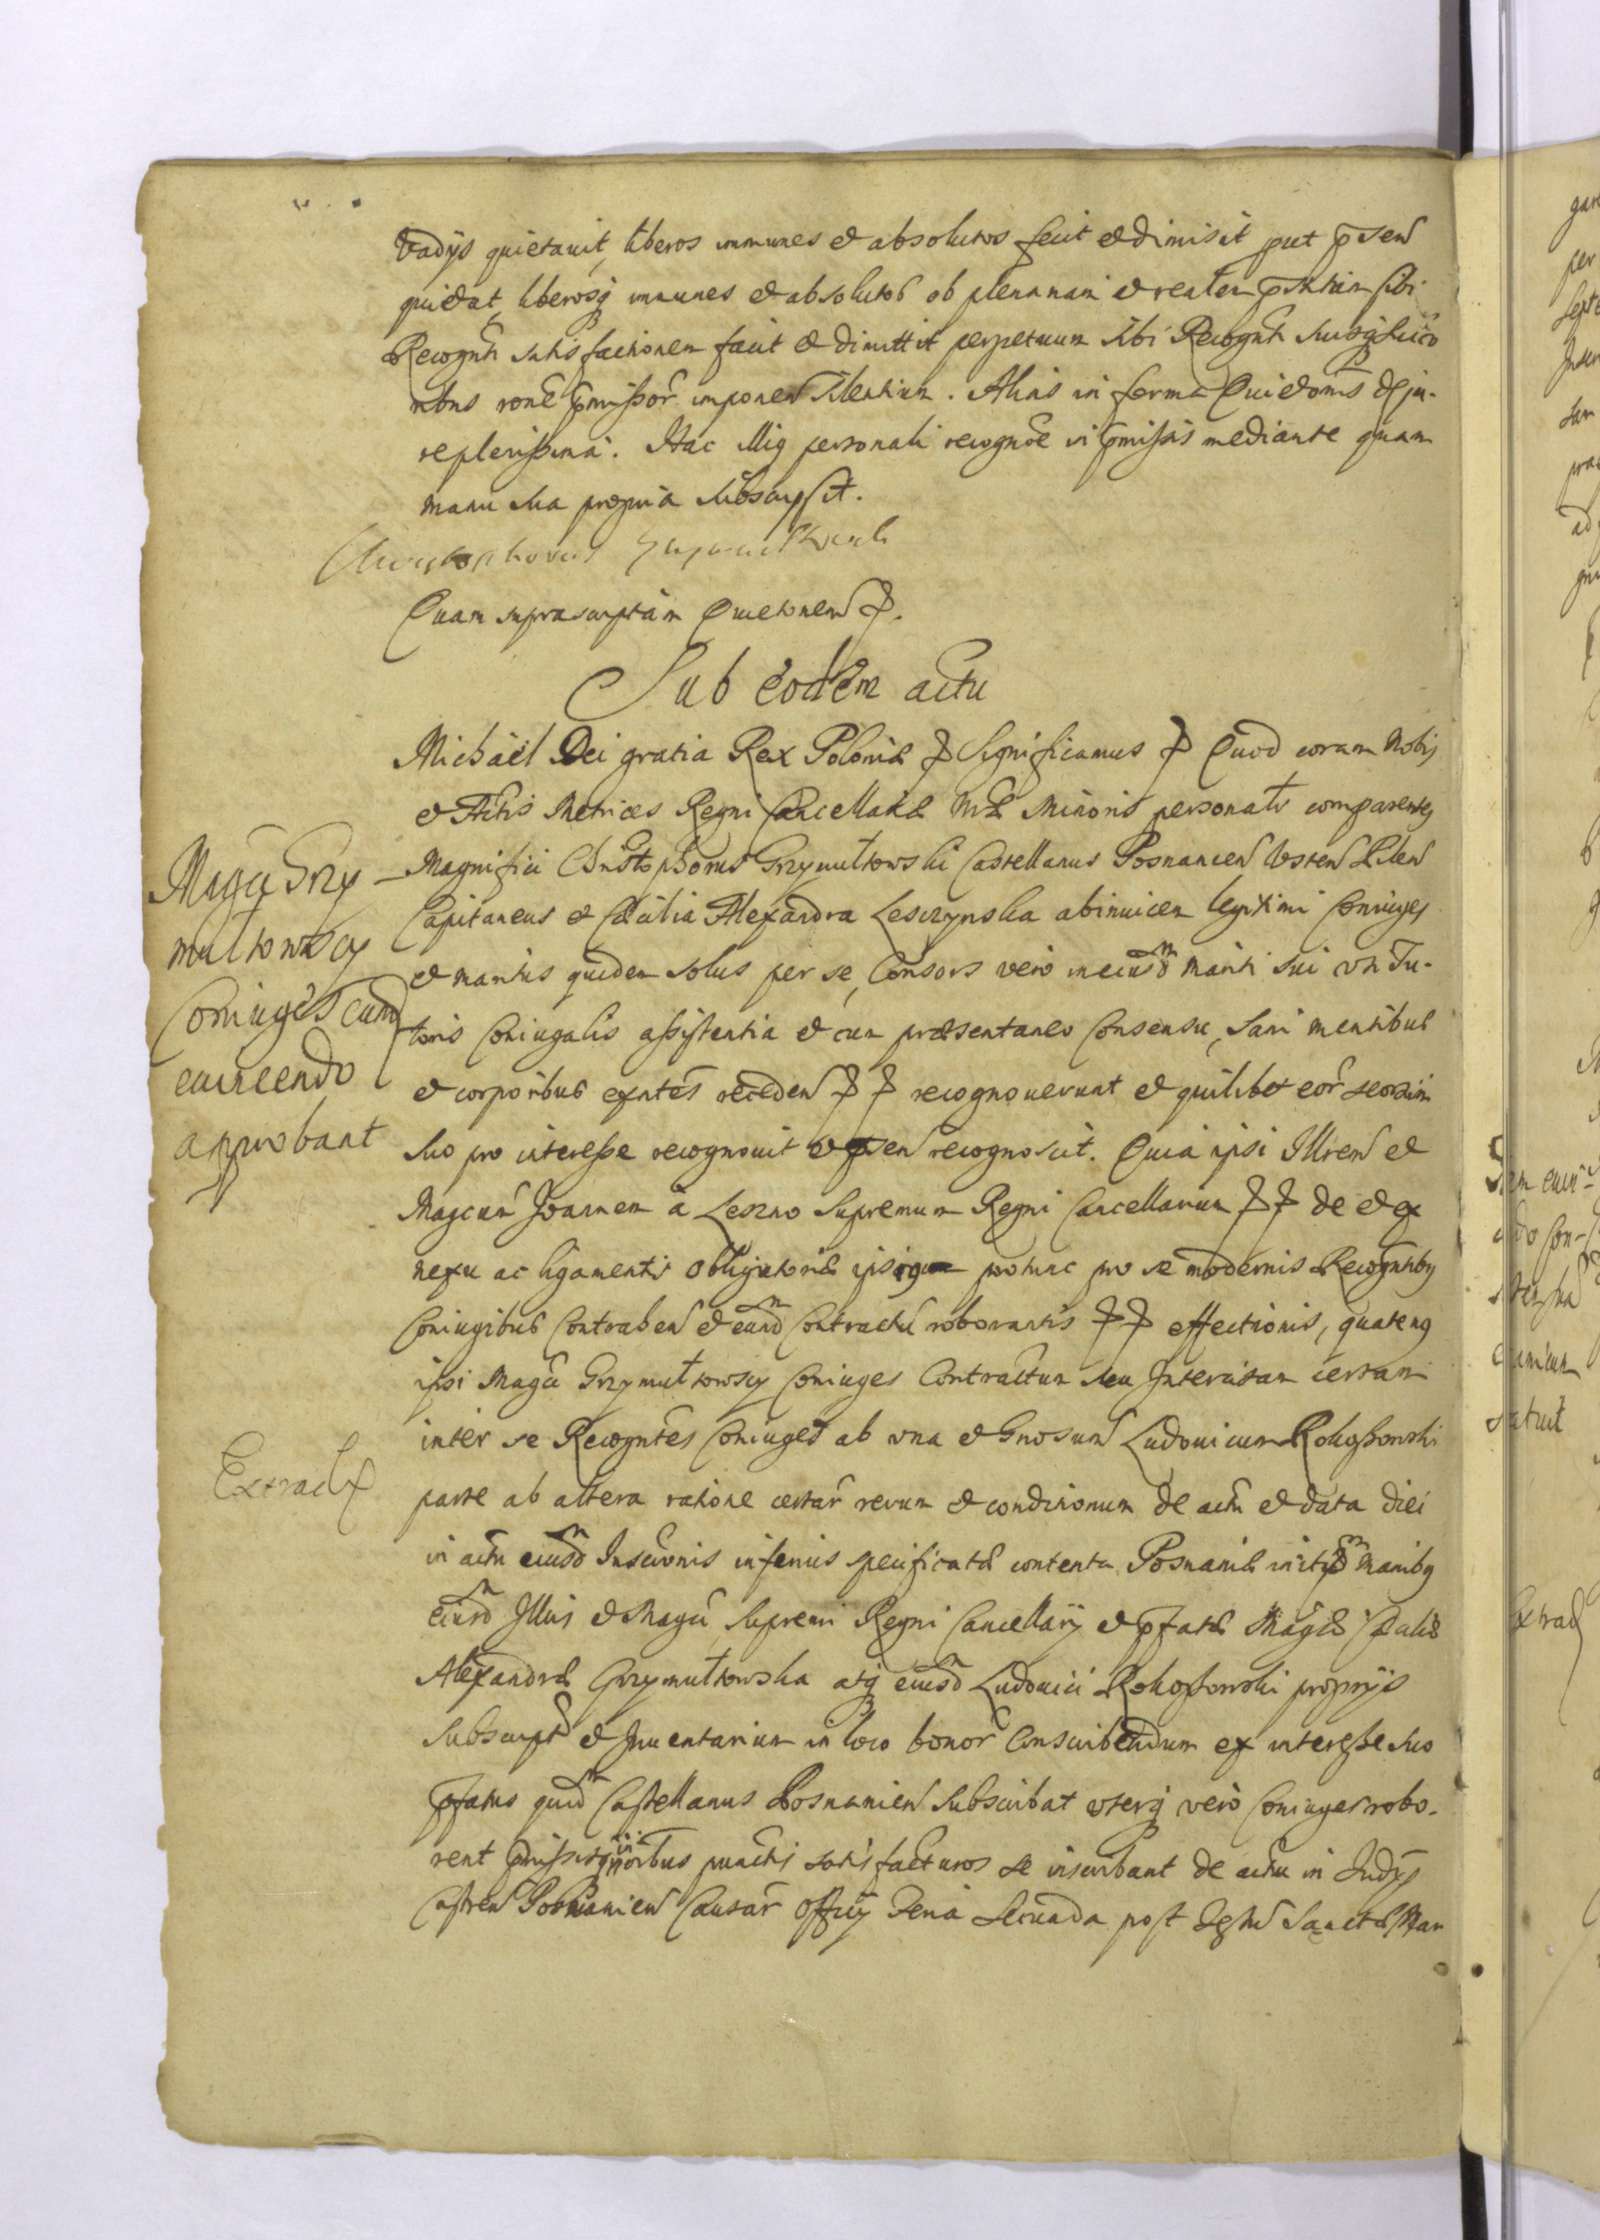 Vadijs quietauit, liberos immunes et absolutos fecit et dimisit put pnsen
quietat, liberosq immunes et absolutos ob plenariam et realem pstitam sibi
Recognti satisfactionem facit et dimittit perpetuum sibi Recognti suisq succes
ribus rone pmissor imponen silentium. Alias in forma Quietonis de ju-
re plenissima. Hac illig personali recognoe in pmissis mediante quam
manu sua propria subscripsit.
Christophorus Grzymultowski
Quam suprascriptam Quietonem
Sub eodem actu
Michaël Dei gratia Rex Poloniæ Significamus Quod coram Nobis
et Actis Metrices Regni Cancellariæ Nræ Minoris personatr comparentes
Magnifici Christophorus Grzymułtowski Castellanus Posnanien Vsten Pilen
Capitaneus et Cæcilia Alexandra Lesczynska abinuicem legitimi Coniuges
et maritus quidem solus per se, Consors vero in eiusdm mariti sui vti Tu-
toris Coniugalis assistentia et cum præsentaneo Consensu, sani mentibus
et corporibus exntes receden recognouerunt et quilibet eor seorsim
suo pro interesse recognouit et pnsen recognoscit. Quia ipsi Illrem et
Magcum Joannem à Leszno Supremum Regni Cancellarium de et ex
nexu ac ligamentis obligatoriæ pronunc pro se modernis Recogntibus
Coniugibus Contrahen et eiusdm Contractu roborantis effectionis, quatenq
ipsi Magci Grzymułtowscy Coniuges Contractum seu Intercisam certam
inter se Recogntes Coniuges ab vna et Gnosum Ludouicum Rokossowski
parte ab altera ratione certar rerum et conditionum de actu et data diei
in actu eiusdm Inscronis inferius specificatæ contenta Posnaniæ manibq
eiusdm Illris et Magci Supremi Regni Cancellarij et pfatæ Magcæ Cæciliæ
Alexandræ Grzymułtowska atq eiusdm Ludouici Rokossowski proprijs
subscript et Inuentarium in loco bonor Conscribendum ex interesse suo
pfatus quidm Castellanus Posnanien subscribat vterq vero Coniuges robo-
rent punctis satisfacturos se inscribant de actu in Judijs
Castren Posnanien Causar Officij Feria Secunda post festum Sanctæ Mar
Magci Grzy-
multowscy
Coniuges cum
euincendo
approbant
Extrad